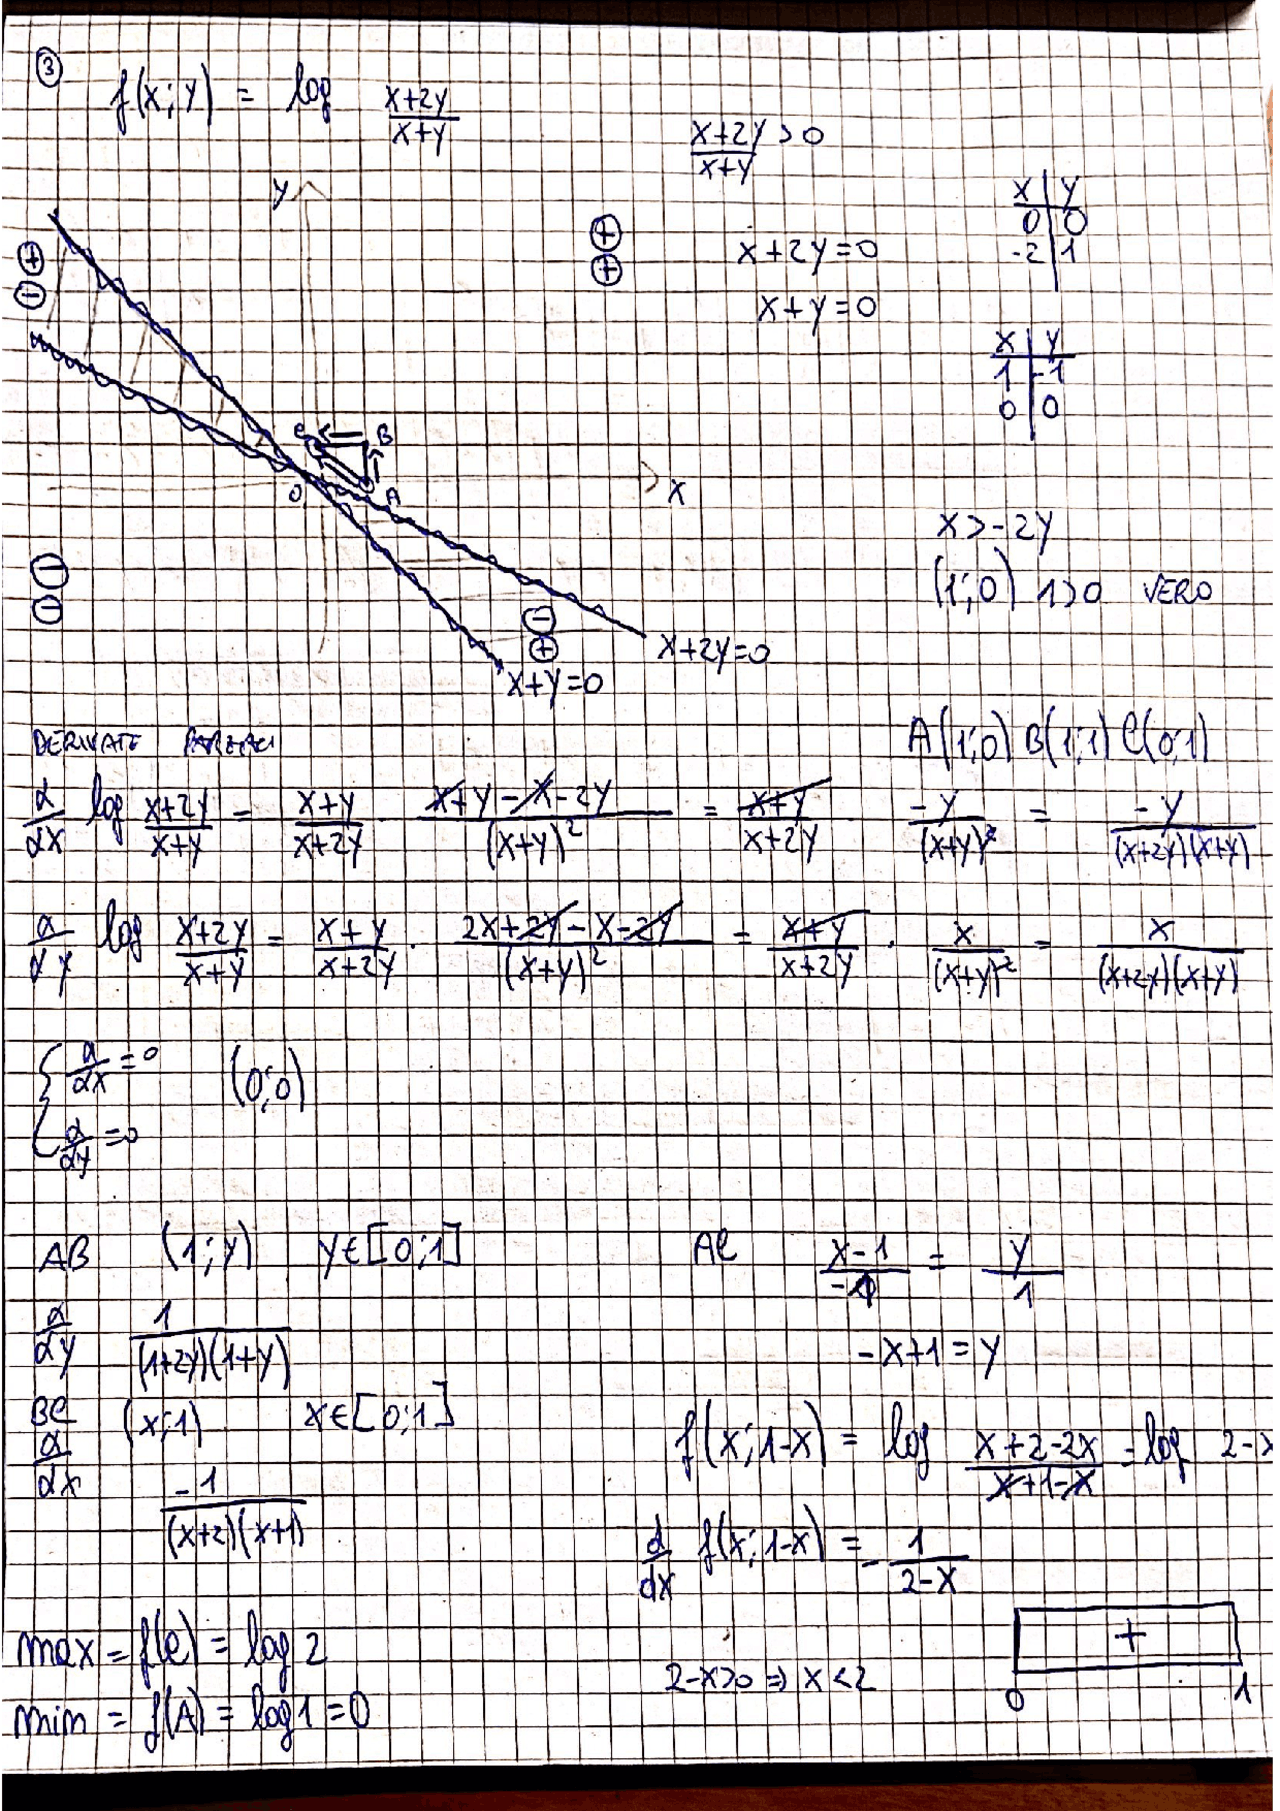 ③
f(x;y) = log (x+2y)/(x+y)
(x+2y)/(x+y) > 0
x | y
0 | 0
-2 | 1
x+2y=0
x+y=0
x | y
1 | -1
0 | 0
y
⊕
⊕
⊕
⊖
C
B
O
A
x
x>-2y
(1;0) 1>0 VERO
⊖
⊖
⊖
⊕
x+2y=0
x+y=0
DERIVATE PARZIALI
A(1;0) B(1;1) C(0;1)
d/dx log (x+2y)/(x+y) = (x+y)/(x+2y) · (x+y-x-2y)/(x+y)² = (x+y)/(x+2y) -y/(x+y)² = -y/((x+2y)(x+y))
d/dy log (x+2y)/(x+y) = (x+y)/(x+2y) · (2x+2y-x-2y)/(x+y)² = (x+y)/(x+2y) · x/(x+y)² = x/((x+2y)(x+y))
{ d/dx = 0 (0;0)
d/dy = 0
AB (1;y) y∈[0;1]
d/dy 1/((1+2y)(1+y))
BC (x;1) x∈[0;1]
d/dx -1/((x+2)(x+1))
AC (x-1)/-1 = y/1
-x+1=y
f(x;1-x) = log (x+2-2x)/(x+1-x) = log 2-x
d/dx f(x;1-x) = -1/(2-x)
2-x>0 ⇒ x<2
+
0 1
max = f(C) = log 2
min = f(A) = log 1 = 0